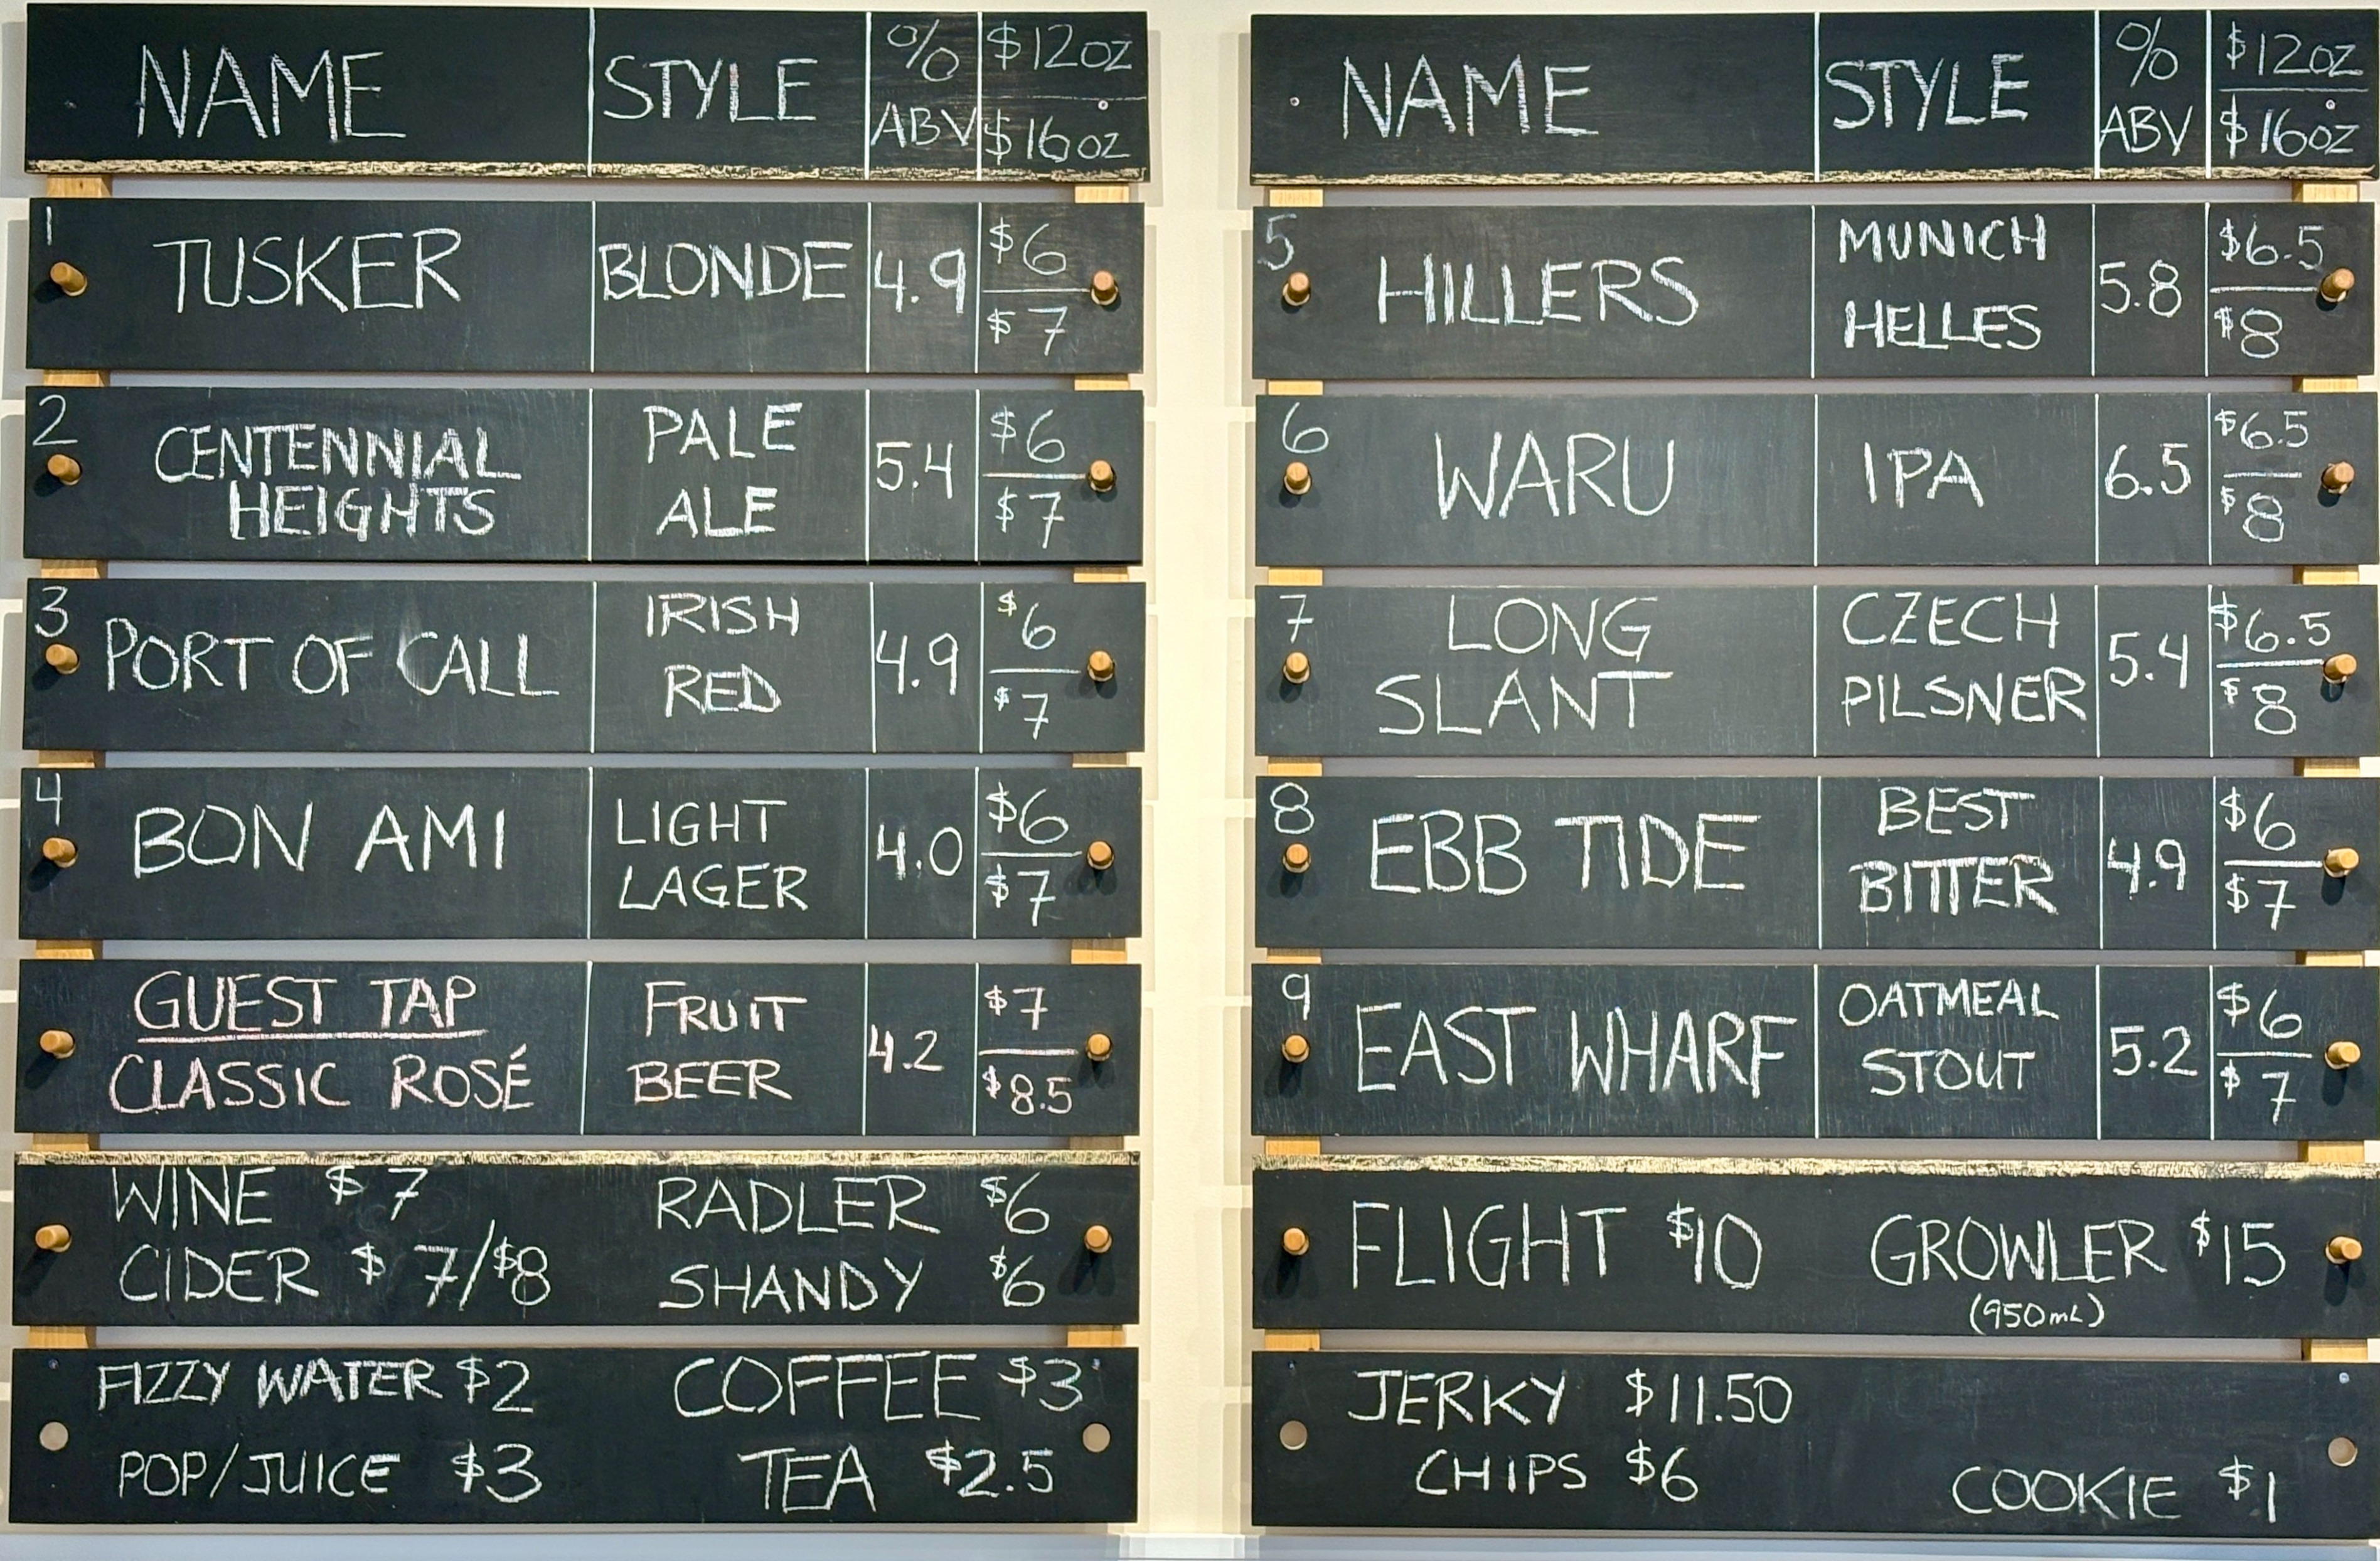 NAME STYLE % ABV $12oz $16oz
1 TUSKER BLONDE 4.9 $6 $7
2 CENTENNIAL HEIGHTS PALE ALE 5.4 $6 $7
3 PORT OF CALL IRISH RED 4.9 $6 $7
4 BON AMI LIGHT LAGER 4.0 $6 $7
GUEST TAP CLASSIC ROSÉ FRUIT BEER 4.2 $7 $8.5
WINE $7 RADLER $6
CIDER $7/$8 SHANDY $6
FIZZY WATER $2 COFFEE $3
POP/JUICE $3 TEA $2.5
NAME STYLE % ABV $12oz $16oz
5 HILLERS MUNICH HELLES 5.8 $6.5 $8
6 WARU IPA 6.5 $6.5 $8
7 LONG SLANT CZECH PILSNER 5.4 $6.5 $8
8 EBB TIDE BEST BITTER 4.9 $6 $7
9 EAST WHARF OATMEAL STOUT 5.2 $6 $7
FLIGHT $10 GROWLER $15
(950mL)
JERKY $11.50
CHIPS $6 COOKIE $1